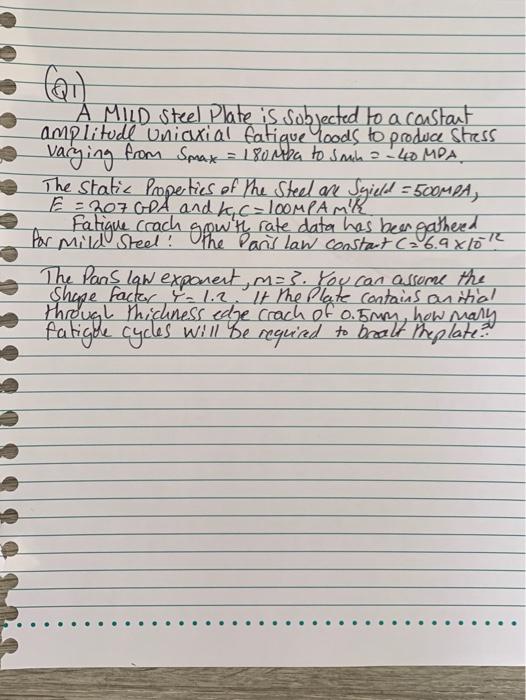 (Q1)
A MILD Steel Plate is Subjected to a constant
amplitude uniaxial fatigue loads to produce Stress
varying from Smax = 180MPa to Smin = -40 MPA.
The Static Properties of the Steel are Syield = 500MPA,
E = 207 GPA and K,C = 100MPA m½.
Fatigue crack growth rate data has been gathered
for mild Steel: The Paris law constant C = 6.9 x 10⁻¹²
The Paris law exponent, m=3. You can assume the
Shape factor Y = 1.2. If the Plate contains an itial
through thickness edge crack of 0.5mm, how many
fatigue cycles will be required to break the plate?